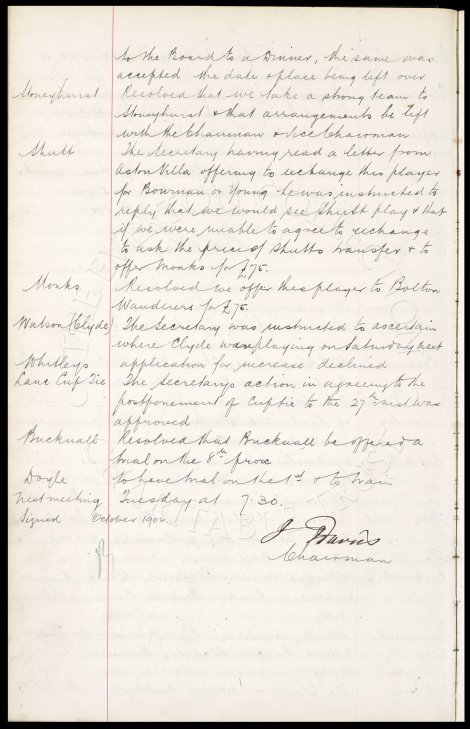 to the Board to a Dinner, the same was
accepted the date & place being left over
Stoneyhurst Resolved that we take a strong team to
Stoneyhurst & that arrangements be left
with the Chairman & Vice Chairman
Shutt The Secretary having read a letter from
Aston Villa offering to exchange this player
for Bowman or Young he was instructed to
reply that we would see Shutt play & that
if we were unable to agree to exchange
to ask the price of Shutts transfer & to
offer Monks for £75.
Monks Resolved we offer this player to Bolton
Wanderers for £75.
Watson (Clyde) The Secretary was instructed to ascertain
where Clyde were playing on Saturday next
Whitleys application for increase declined
Lanc Cup Tie The Secretarys action in agreeing to the
postponement of Cuptie to the 27th inst was
approved
Bucknall Resolved that Bucknall be offered a
trial on the 8th prox
Doyle to have trial on the 1st & to train
Next meeting Tuesday at 7.30.
Signed October 190
J. Davies
Chairman